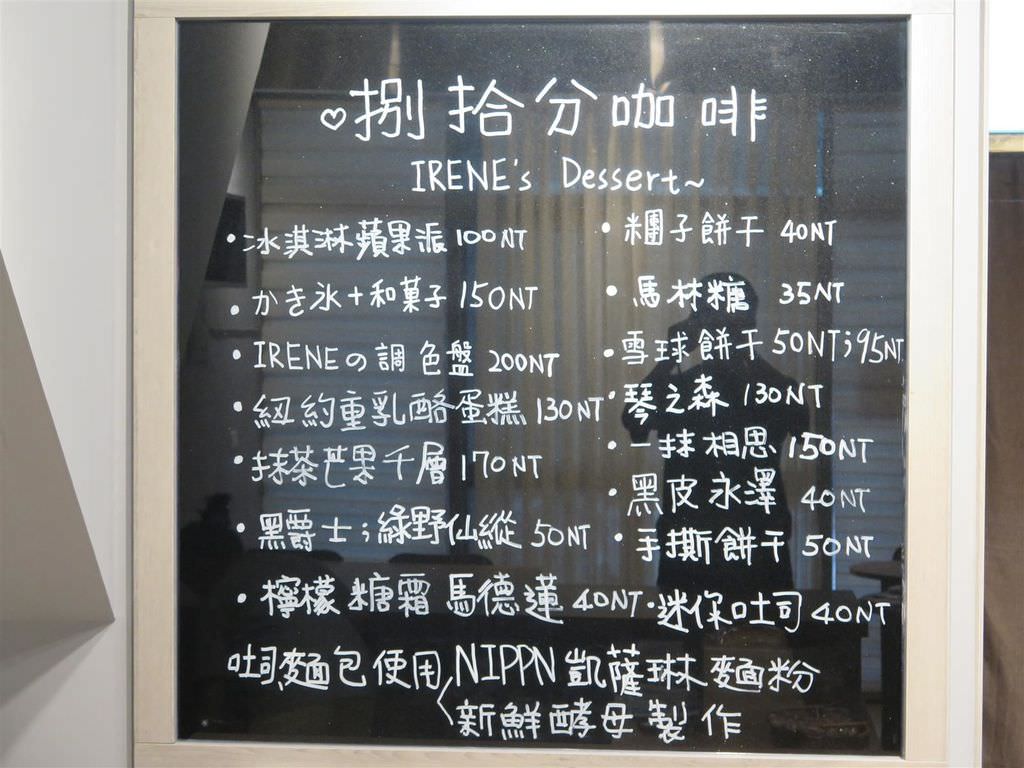 ♡捌拾分咖啡
IRENE's Dessert~
•冰淇淋蘋果派 100NT
•かき氷+和菓子 150NT
•IRENEの調色盤 200NT
•紐約重乳酪蛋糕 130NT
•抹茶芒果千層 170NT
•黑爵士;綠野仙縱 50NT
•檸檬糖霜馬德蓮 40NT
•糰子餅干 40NT
•馬林糖 35NT
•雪球餅干 50NT;95NT
•琴之森 130NT
•一抹相思 150NT
•黑皮永澤 40NT
•手撕餅干 50NT
•迷你吐司 40NT
吐司、麵包使用 NIPPN 凱薩琳麵粉
新鮮酵母製作